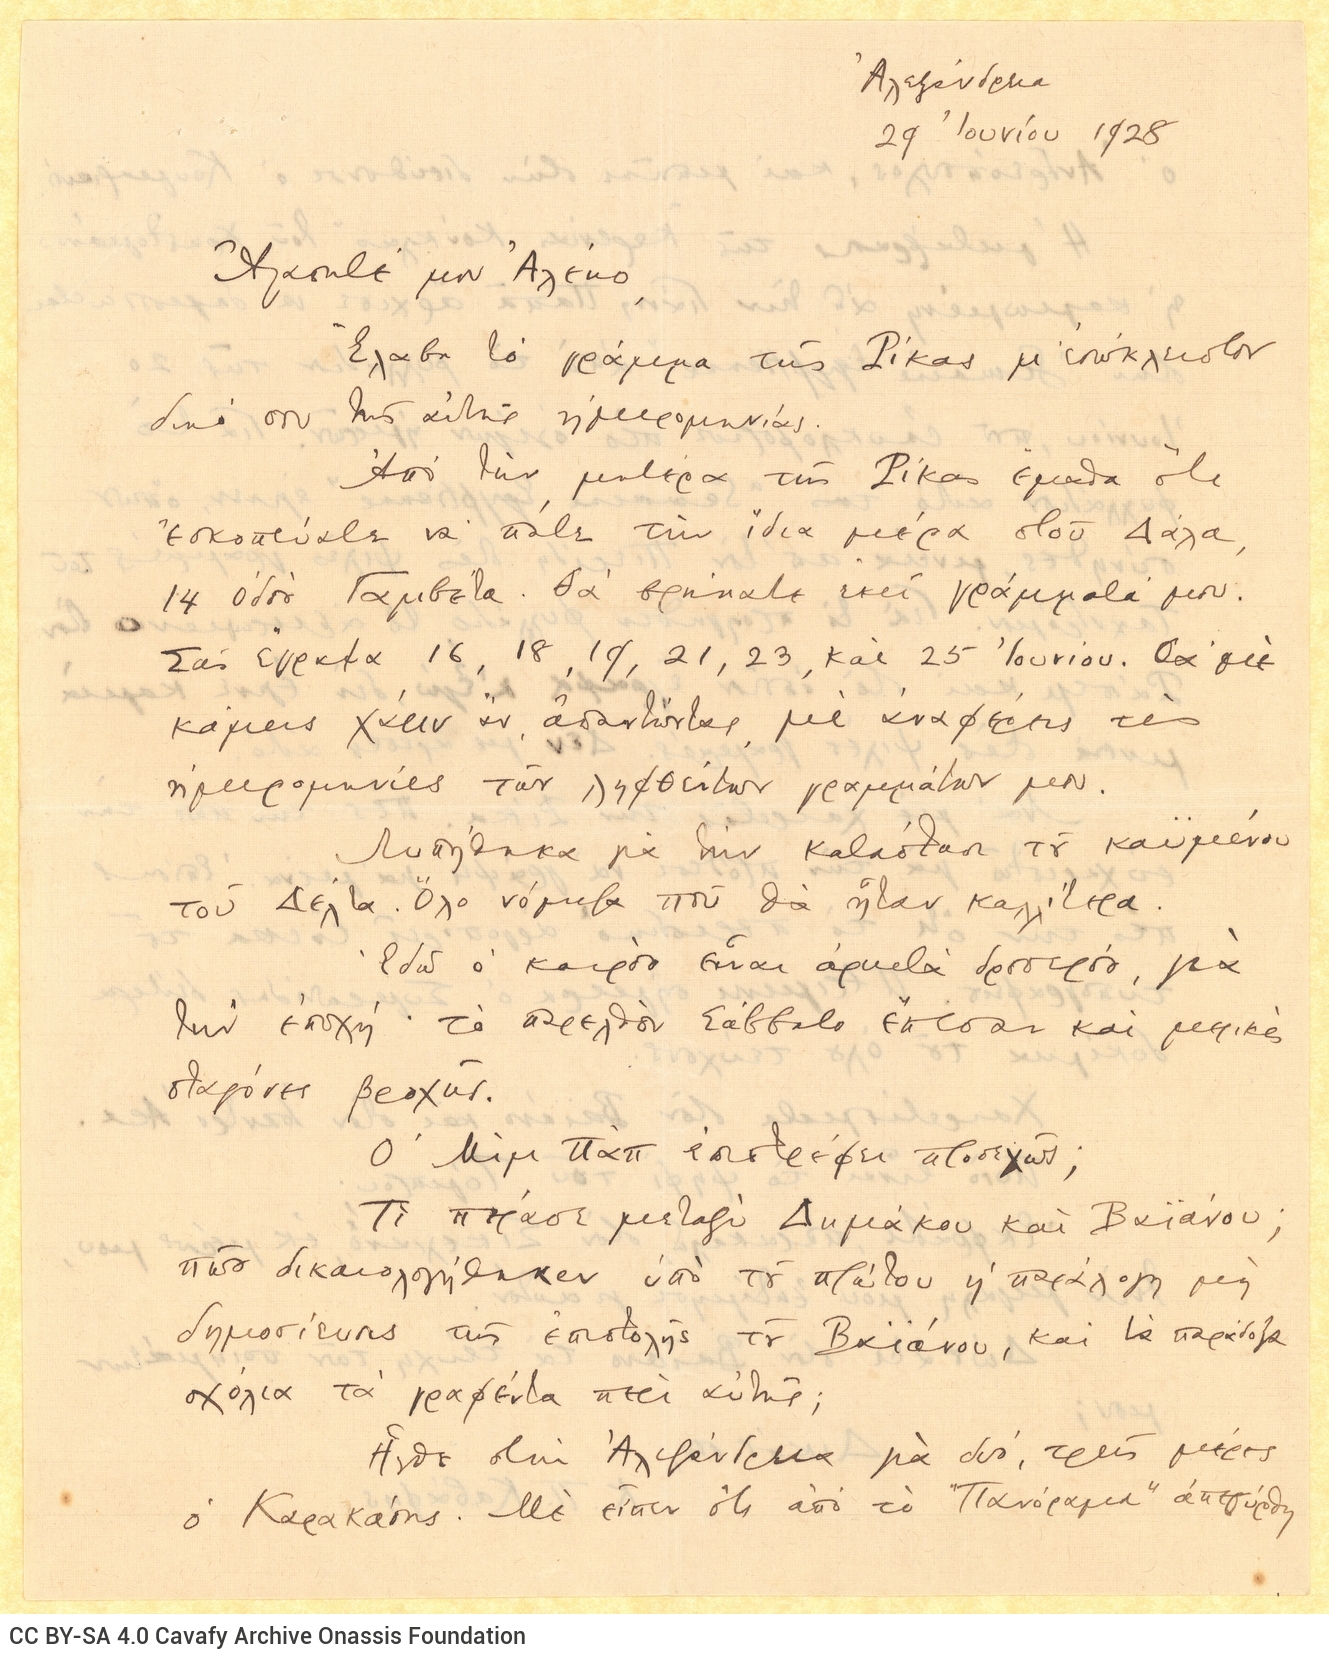 Ἀλεξάνδρεια
29 Ἰουνίου 1928
Ἀγαπητέ μου Ἀλέκο,
Ἔλαβα τὸ γράμμα τῆς Ρίκας μ' ἐσώκλειστον
δικό σου τῆς αὐτῆς ἡμερομηνίας.
Ἀπὸ τὴν μητέρα τῆς Ρίκας ἔμαθα ὅτι
ἐσκοπεύατε νὰ πάτε τὴν ἴδια μέρα στοῦ Δάλα,
14 ὁδὸς Γαμβέτα. Θὰ βρήκατε ἐκεῖ γράμματά μου.
Σᾶς ἔγραψα 16, 18, 19, 21, 23, καὶ 25 Ἰουνίου. Θὰ μὲ
κάμεις χάριν ἄν, ἀπαντῶντας, μὲ ἀναφέρεις τὲς
ἡμερομηνίες τῶν ληφθέντων γραμμάτων μου.
Λυπήθηκα γιὰ τὴν κατάστασι τοῦ καϋμένου
τοῦ Δέλτα. Ὅλο νόμιζα ποῦ θὰ ἦταν καλλίτερα.
Ἐδῶ ὁ καιρὸς εἶναι ἀρκετὰ δροσερός, γιὰ
τὴν ἐποχή· τὸ παρελθὸν Σάββατο ἔπεσαν καὶ μερικὲς
σταγόνες βροχῆς.
Ὁ Μὶμ Πὰπ ἐπιστρέφει προσεχῶς;
Τὶ πέρασε μεταξὺ Δημάκου καὶ Βαϊάνου;
πῶς δικαιολογήθηκεν ὑπὸ τοῦ πρώτου ἡ παράλογη μὴ
δημοσίευσις τῆς ἐπιστολῆς τοῦ Βαϊάνου, καὶ τὰ παράδοξα
σχόλια τὰ γραφέντα περὶ αὐτῆς;
Ἦλθε στὴν Ἀλεξάνδρεια γιὰ δυό, τρεῖς μέρες
ὁ Καρακάσης. Μὲ εἶπεν ὅτι ἀπὸ τὸ "Πανόραμα" ἀπεσύρθη
CC BY-SA 4.0 Cavafy Archive Onassis Foundation